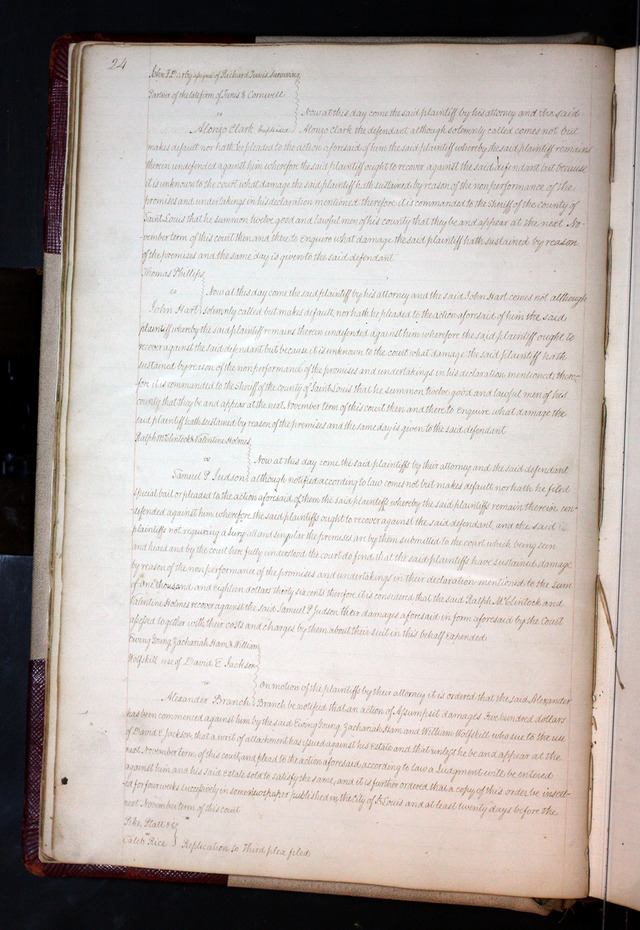 24
John F Darby assignee of Richard Jarvis Surviving
Partner of the late firm of Jarvis & Cornwell
vs Now at this day come the said plaintiff by his attorney and the said
Alongo Clark Alongo Clark the defendant although solomnly called comes not but
makes default nor hath he pleaded to the action aforesaid of him the said plaintiff whereby the said plaintiff remains
therein undefended against him wherefore the said plaintiff ought to recover against the said defendant but because
it is unknown to the court what damage the said plaintiff hath sustained by reason of the nonperformance of the
promises and undertakings in his declaration mentioned therefore it is commanded to the Sheriff of the county of
Saint Louis that he summon twelve good and lawful men of his county that they be and appear at the next No-
vember term of this court then and there to enquire what damage the said plaintiff hath sustained by reason
of the premises and the same day is given to the said defendant
Thomas Phillips
vs Now at this day come the said plaintiff by his attorney and the said John Hart comes not although
John Hart solomnly called but makes default nor hath he pleaded to the action aforsaid of him the said
plaintiff whereby the said plaintiff remains therein undefended against him wherefore the said plaintiff ought to
recover against the said defendant but because it is unknown to the court what damage the said plaintiff hath
sustained by reason of the nonperformance of the promises and undertakings in his declaration mentioned there-
fore it is commanded to the Sheriff of the county of Saint Louis that he summon twelve good and lawful men of his
county that they be and appear at the next November term of this court then and there to enquire what damage the
said plaintiff hath sustained by reason of the premises and the same day is given to the said defendant
Ralph McClintock & Valentine Holmes
vs Now at this day come the said plaintiffs by their attorney and the said defendant
Samuel P. Judson although notified according to law comes not but makes default nor hath he filed
Special bail or pleaded to the action aforsaid of them the said plaintiffs whereby the said plaintiffs remain therein un-
defended against him wherefore the said plaintiffs ought to recover against the said defendant, and the said
plaintiffs not requiring a Jury all and singular the premises are by them submitted to the court which being seen
and heard and by the court here fully understood the court do find that the said plaintiffs have sustained damage
by reason of the non performance of the promises and undertakings in their declaration mentioned to the sum
of one thousand and eighteen dollars thirty six cents therefore it is considered that the said Ralph McClintock and
Valentine Holmes recover against the said Samuel P. Judson their damages aforesaid in form aforsaid by the Court
assessed together with their costs and charges by them about their suit in this behalf expended
Ewing Young Zachariah Ham & William
Wolfskill use of David E Jackson
vs On motion of the plaintiffs by their attorney it is ordered that the said Alexander
Alexander Branch Branch be notified that an action of Assumpsit damages five hundred dollars
has been commenced against him by the said Ewing Young Zachariah Ham and William Wolfskill who sue to the use
of David E Jackson that a writ of attachment has issued against his Estate and that unless he be and appear at the
next November term of this court, and plead to the action aforesaid according to law a Judgment will be entered
against him and his said Estate sold to satisfy the same, and it is further ordered that a copy of this order be insert-
ed for four weeks successively in some newspaper published in the City of St Louis and at least twenty days before the
next November term of this court
Pike Platt & Co
vs
Caleb Rice Replication to third plea filed